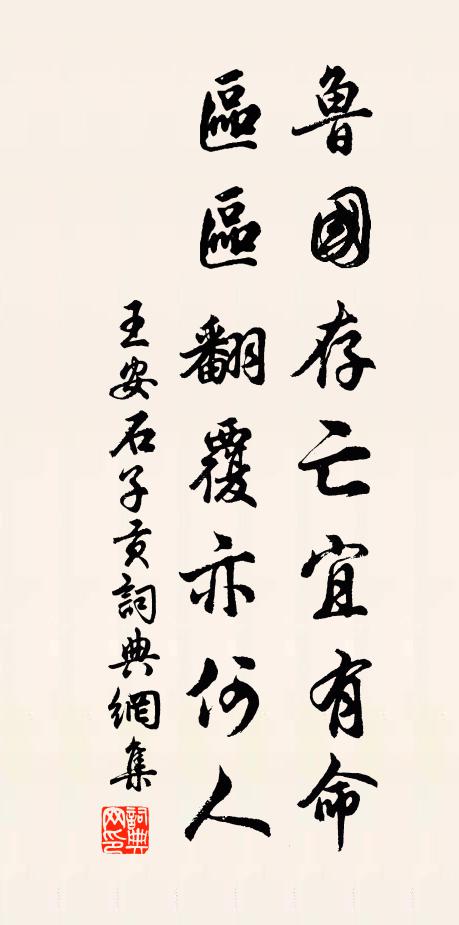 魯國存亡宜有命
區區翻覆亦何人
王安石子貢詞典網集
詞典網印